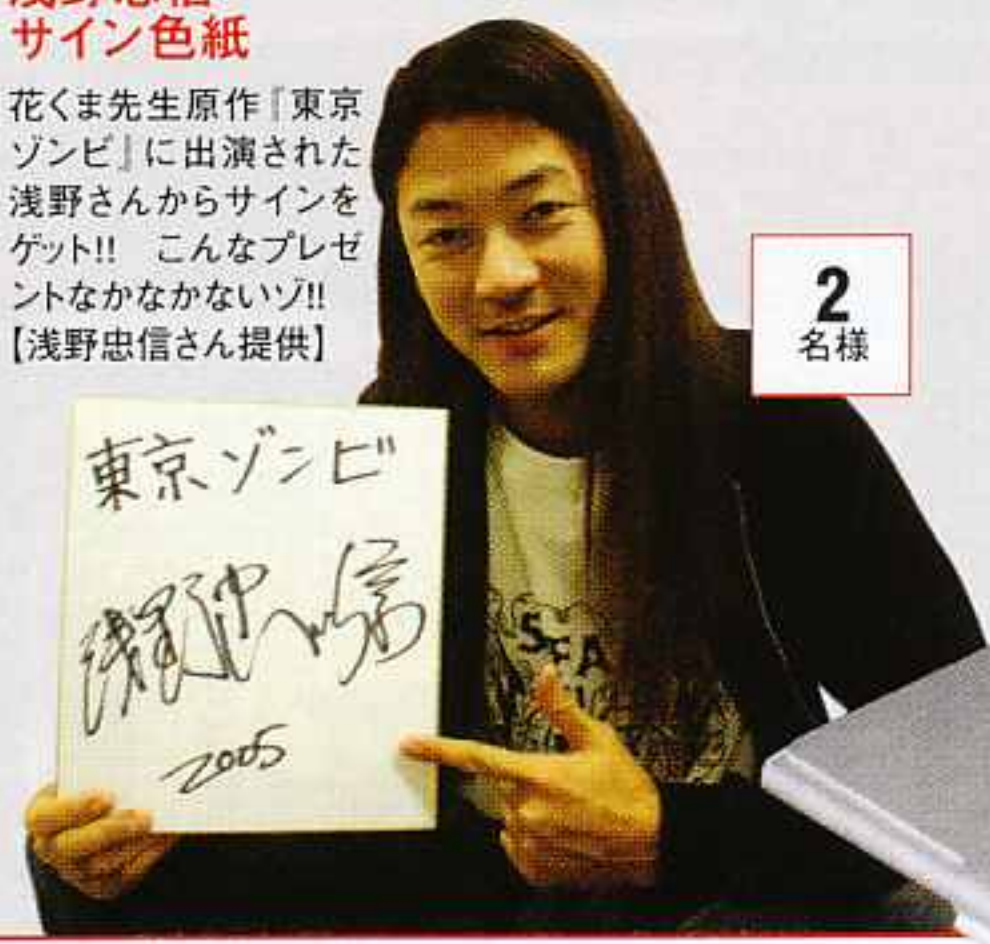 サイン色紙
花くま先生原作『東京
ゾンビ』に出演された
浅野さんからサインを
ゲット!!　こんなプレゼ
ントなかなかないゾ!!
【浅野忠信さん提供】
2
名様
東京ゾンビ
浅野忠信
2005